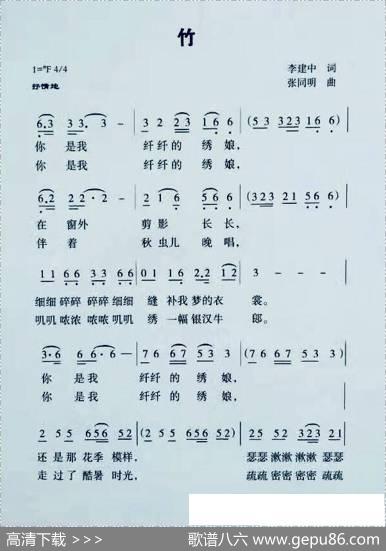 竹
1=#F 4/4
李建中 词
抒情地
张同明 曲
6.3 3 3. 3 - | 3 2 2 3 1 6 6 | (5 3 3 2 3 1 6 6) |
你 是我 纤纤的 绣 娘,
你 是我 纤纤的 绣 娘,
6.2 2 2. 2 - | 2 1 6 5 6 5 6 | (3 2 3 2 1 5 6 6) |
在 窗外 剪影 长长,
伴 着 秋虫儿 晚唱,
1 1 6 6 3 3 6 6 | 0 1 1 6 2.2 1 2 | 3 - - - |
细细碎碎碎碎细细 缝补我梦的衣 裳。
叽叽哝浓哝哝叽叽 绣一幅银汉牛 郎。
3.6 6 6. 6 - | 7 6 6 7 5 3 3 | (7 6 6 7 5 3 3) |
你 是我 纤纤的 绣 娘,
你 是我 纤纤的 绣 娘,
2 5 5 5 6 5 6 5 2 | (5 5 5 6 5 6 5 2) | 2 5 5 2 3 3 2 1 |
还是那花季模样, 瑟瑟漱漱漱漱瑟瑟
走过了酷暑时光, 疏疏密密密密疏疏
高清下载 >>>
歌谱八六 www.gepu86.com